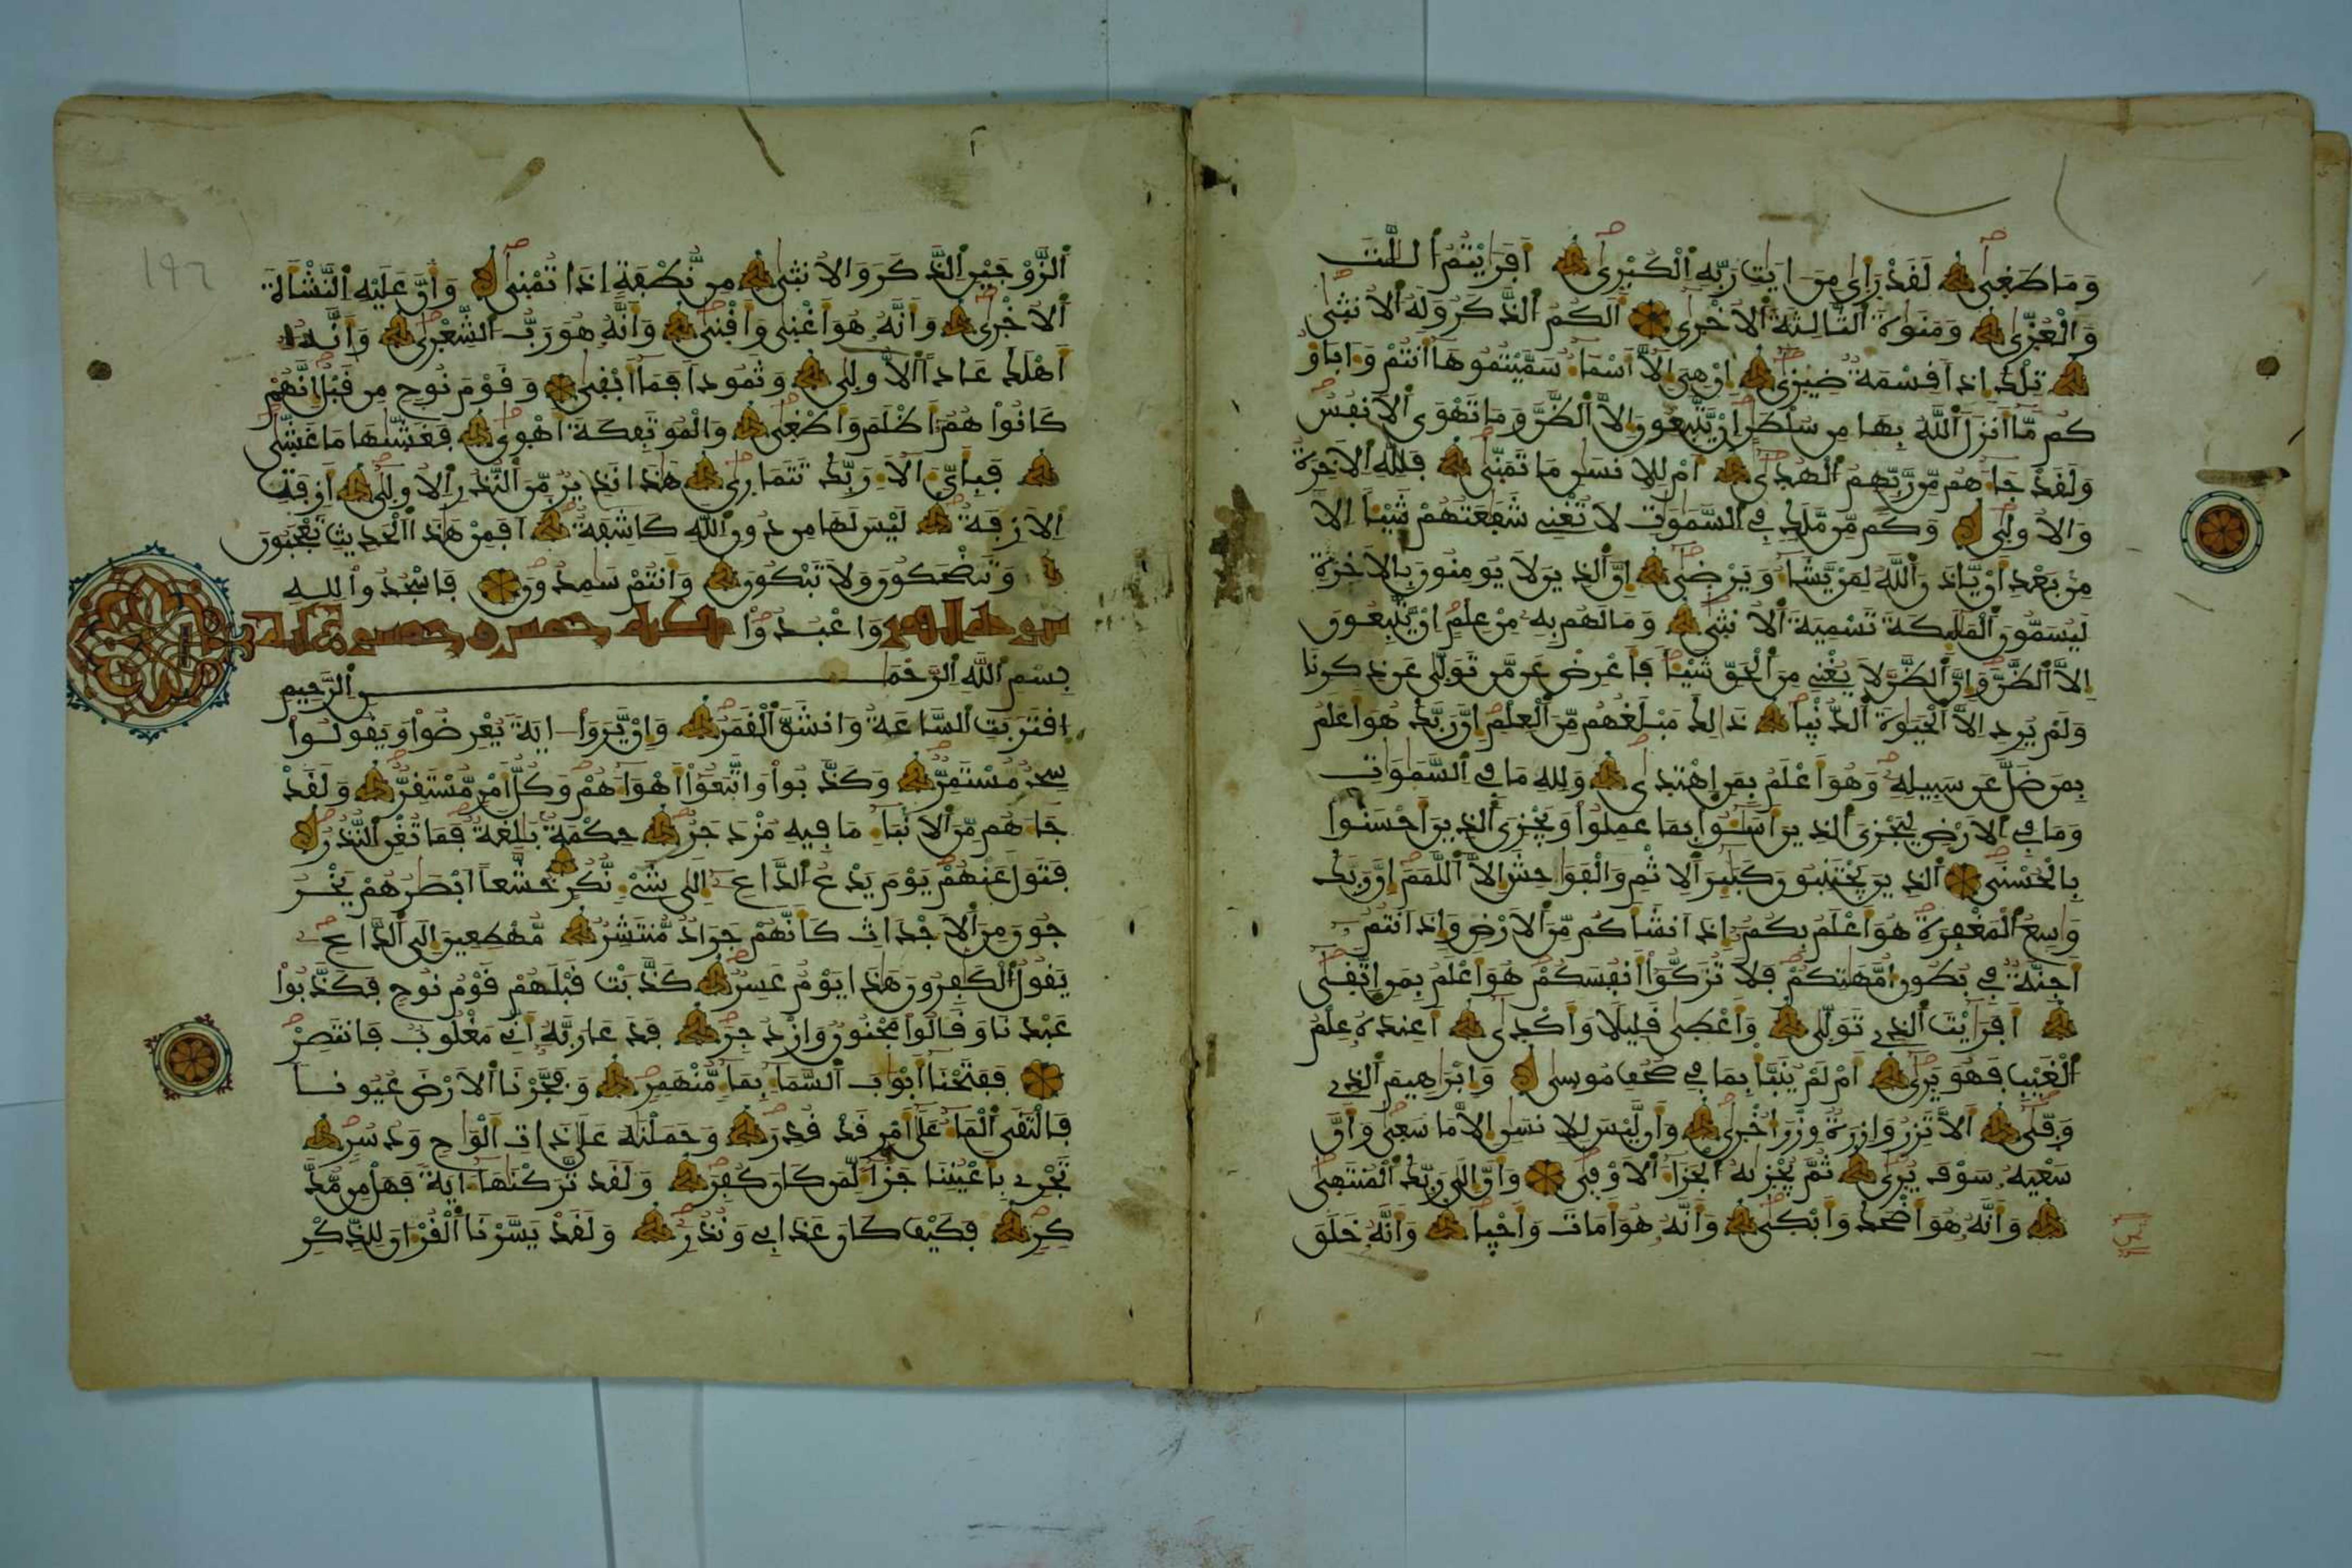 وَمَا طَغِىٰ لَقَدْ رَأىٰ مِنَ ايَٰتِ رَبِّهِ اِ۬لْكُبْرِىٰٓ أَفَرَٰيْتُمُ اُ۬للَّٰتَ
وَالْعُزّ۪ىٰ وَمَنَوٰةَ اَ۬لثَّالِثَةَ اَ۬لُاخْرِىٰٓ أَلَكُمُ اُ۬لذَّكَرُ وَلَهُ اُ۬لُانثىٰ
تِلْكَ إِذاٗ قِسْمَةٞ ضِيز۪ىٰٓ إِنْ هِىَ إِلَّآ أَسْمَآءٞ سَمَّيْتُمُوهَآ أَنتُمْ وَءَابَآؤُ
كُم مَّآ أَنزَلَ اَ۬للَّهُ بِهَا مِن سُلْطَٰنٍ اِنْ يَّتَّبِعُونَ إِلَّا اَ۬لظَّنَّ وَمَا تَهْوَى اَ۬لَانفُسُ
وَلَقَدْ جَآءَهُم مِّن رَّبِّهِمُ اُ۬لْهُد۪ىٰٓ أَمْ لِلِانسَٰنِ مَا تَمَنّ۪ىٰ فَلِلهِ اِ۬لَاخِرَةُ
وَالُاول۪ىٰ وَكَم مِّن مَّلَكٖ فِے اِ۬لسَّمَٰوَٰتِ لَا تُغْنِے شَفَٰعَتُهُمْ شَيْـٔاً اِلَّا
مِنۢ بَعْدِ أَنْ يَّاذَنَ اَ۬للَّهُ لِمَنْ يَّشَآءُ وَيَرْض۪ىٰٓ إِنَّ اَ۬لذِينَ لَا يُومِنُونَ بِالَاخِرَةِ
لَيُسَمُّونَ اَ۬لْمَلَٰٓئِكَةَ تَسْمِيَةَ اَ۬لُانثىٰ وَمَا لَهُم بِهِۦ مِنْ عِلْمٍ اِنْ يَّتَّبِعُونَ
إِلَّا اَ۬لظَّنَّ وَإِنَّ اَ۬لظَّنَّ لَا يُغْنِے مِنَ اَ۬لْحَقِّ شَيْـٔاٗ فَأَعْرِضْ عَن مَّن تَوَلّ۪ىٰ عَن ذِكْرِنَا
وَلَمْ يُرِدِ اِلَّا اَ۬لْحَيَوٰةَ اَ۬لدُّنْيا ذَٰلِكَ مَبْلَغُهُم مِّنَ اَ۬لْعِلْمِ إِنَّ رَبَّكَ هُوَ أَعْلَمُ
بِمَن ضَلَّ عَن سَبِيلِهِۦ وَهُوَ أَعْلَمُ بِمَنِ اِ۪هْتَد۪ىٰ وَلِلهِ مَا فِے اِ۬لسَّمَٰوَٰتِ
وَمَا فِے اِ۬لَارْضِ لِيَجْزِىَ اَ۬لذِينَ أَسَٰٓـُٔواْ بِمَا عَمِلُواْ وَيَجْزِىَ اَ۬لذِينَ أَحْسَنُواْ
بِالْحُسْنَى اَ۬لذِينَ يَجْتَنِبُونَ كَبَٰٓئِرَ اَ۬لِاثْمِ وَالْفَوَٰحِشَ إِلَّا اَ۬للَّمَمَ إِنَّ رَبَّكَ
وَٰسِعُ اُ۬لْمَغْفِرَةِ هُوَ أَعْلَمُ بِكُمُۥٓ إِذَ اَنشَأَكُم مِّنَ اَ۬لَارْضِ وَإِذَ اَنتُمُۥٓ
أَجِنَّةٞ فِے بُطُونِ أُمَّهَٰتِكُمْ فَلَا تُزَكُّوٓاْ أَنفُسَكُمْ هُوَ أَعْلَمُ بِمَنِ اِ۪تَّق۪ىٰٓ
أَفَرَٰيْتَ اَ۬لذِے تَوَلّ۪ىٰ وَأَعْط۪ىٰ قَلِيلاٗ وَأَكْد۪ىٰٓ أَعِندَهُۥ عِلْمُ
اُ۬لْغَيْبِ فَهُوَ يَر۪ىٰٓ أَمْ لَمْ يُنَبَّأْ بِمَا فِے صُحُفِ مُوس۪ىٰ وَإِبْرَٰهِيمَ اَ۬لذِے
وَفّ۪ىٰٓ أَلَّا تَزِرُ وَازِرَةٞ وِزْرَ أُخْر۪ىٰ وَأَن لَّيْسَ لِلِانسَٰنِ إِلَّا مَا سَع۪ىٰ وَأَنَّ
سَعْيَهُۥ سَوْفَ يُر۪ىٰ ثُمَّ يُجْز۪ىٰهُ اُ۬لْجَزَآءَ اَ۬لَاوْف۪ىٰ وَأَنَّ إِلَىٰ رَبِّكَ اَ۬لْمُنتَه۪ىٰ
وَأَنَّهُۥ هُوَ أَضْحَكَ وَأَبْك۪ىٰ وَأَنَّهُۥ هُوَ أَمَاتَ وَأَحْيا وَأَنَّهُۥ خَلَقَ
١٩٦
اَ۬لزَّوْجَيْنِ اِ۬لذَّكَرَ وَالُانثىٰ مِن نُّطْفَةٍ اِذَا تُمْن۪ىٰ وَأَنَّ عَلَيْهِ اِ۬لنَّشْأَةَ
اَ۬لُاخْر۪ىٰ وَأَنَّهُۥ هُوَ أَغْن۪ىٰ وَأَقْن۪ىٰ وَأَنَّهُۥ هُوَ رَبُّ اُ۬لشِّعْر۪ىٰ وَأَنَّهُۥٓ
أَهْلَكَ عَاداً اَ۬لُّاول۪ىٰ وَثَمُوداٗ فَمَآ أَبْق۪ىٰ وَقَوْمَ نُوحٖ مِّن قَبْلُ إِنَّهُمْ
كَانُواْ هُمُۥٓ أَظْلَمَ وَأَطْغ۪ىٰ وَالْمُوتَفِكَةَ أَهْو۪ىٰ فَغَشّ۪ىٰهَا مَا غَشّ۪ىٰ
فَبِأَىِّ ءَالَآءِ رَبِّكَ تَتَمَار۪ىٰ هَٰذَا نَذِيرٞ مِّنَ اَ۬لنُّذُرِ اِ۬لُاول۪ىٰٓ أَزِفَتِ
اِ۬لَازِفَةُ لَيْسَ لَهَا مِن دُونِ اِ۬للَّهِ كَاشِفَةٌ أَفَمِنْ هَٰذَا اَ۬لْحَدِيثِ تَعْجَبُونَ
وَتَضْحَكُونَ وَلَا تَبْكُونَ وَأَنتُمْ سَٰمِدُونَ فَاسْجُدُواْ لِلهِ
وَاعْبُدُواْ
سورة القمر مكية خمس وخمسون آية
بِسْمِ اِ۬للَّهِ اِ۬لرَّحْمَٰنِ اِ۬لرَّحِيمِ
اِ۪قْتَرَبَتِ اِ۬لسَّاعَةُ وَانشَقَّ اَ۬لْقَمَرُ وَإِنْ يَّرَوَاْ ايَةٗ يُعْرِضُواْ وَيَقُولُواْ
سِحْرٞ مُّسْتَمِرّٞ وَكَذَّبُواْ وَاتَّبَعُوٓاْ أَهْوَآءَهُمْ وَكُلُّ أَمْرٖ مُّسْتَقِرّٞ وَلَقَدْ
جَآءَهُم مِّنَ اَ۬لَانۢبَآءِ مَا فِيهِ مُزْدَجَرٌ حِكْمَةُۢ بَٰلِغَةٞ فَمَا تُغْنِ اِ۬لنُّذُرُ
فَتَوَلَّ عَنْهُمْ يَوْمَ يَدْعُ اُ۬لدَّاعِۦٓ إِلَىٰ شَےْءٖ نُّكُرٍ خُشَّعاً اَبْصَٰرُهُمْ يَخْرُ
جُونَ مِنَ اَ۬لَاجْدَاثِ كَأَنَّهُمْ جَرَادٞ مُّنتَشِرٞ مُّهْطِعِينَ إِلَى اَ۬لدَّاعِۦ
يَقُولُ اُ۬لْكَٰفِرُونَ هَٰذَا يَوْمٌ عَسِرٞ كَذَّبَتْ قَبْلَهُمْ قَوْمُ نُوحٖ فَكَذَّبُواْ
عَبْدَنَا وَقَالُواْ مَجْنُونٞ وَازْدُجِرَ فَدَعَا رَبَّهُۥٓ أَنِّے مَغْلُوبٞ فَانتَصِرْ
فَفَتَحْنَآ أَبْوَٰبَ اَ۬لسَّمَآءِ بِمَآءٖ مُّنْهَمِرٖ وَفَجَّرْنَا اَ۬لَارْضَ عُيُوناٗ
فَالْتَقَى اَ۬لْمَآءُ عَلَىٰٓ أَمْرٖ قَدْ قُدِرَ وَحَمَلْنَٰهُ عَلَىٰ ذَاتِ أَلْوَٰحٖ وَدُسُرٖ
تَجْرِے بِأَعْيُنِنَا جَزَآءٗ لِّمَن كَانَ كُفِرَ وَلَقَد تَّرَكْنَٰهَآ ءَايَةٗ فَهَلْ مِن مُّدَّ
كِرٖ فَكَيْفَ كَانَ عَذَابِے وَنُذُرِ وَلَقَدْ يَسَّرْنَا اَ۬لْقُرْءَانَ لِلذِّكْرِ